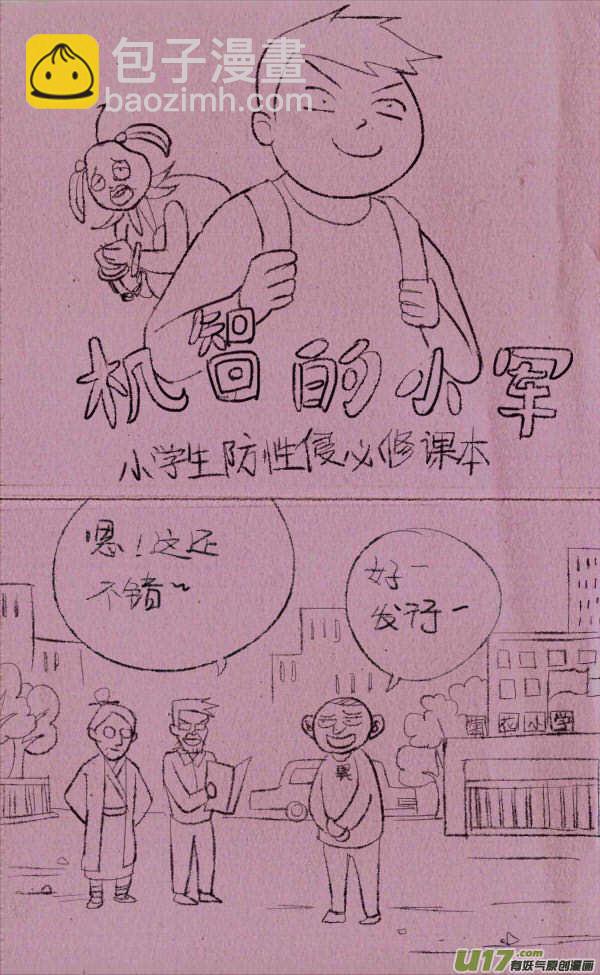 包子漫畫
baozimh.com
机智的小军
小学生防性侵必修课本
嗯！这还
不错~
好一
发行一
花小学
U17.com
有妖气原创漫画